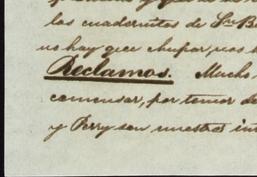 los cuadernitos de Sn B
no hay que chupar, nos
Reclamos. Mucho
comensar, por temor de
y Perry son nuestros in